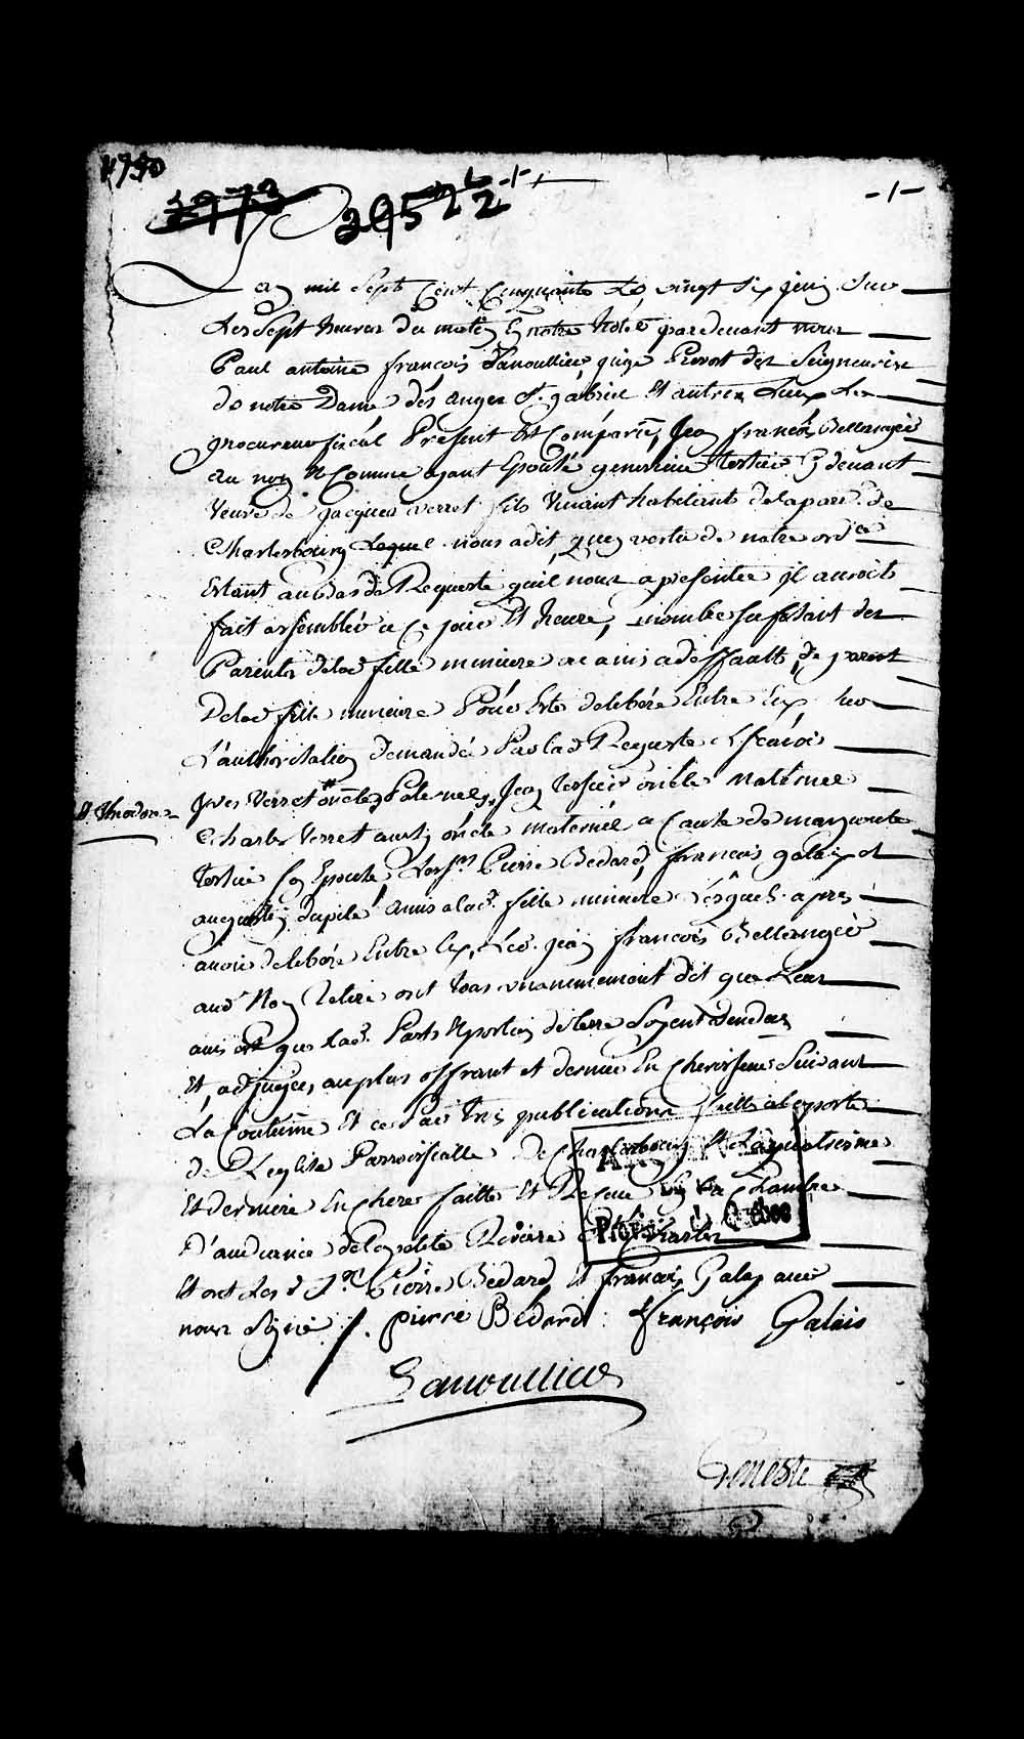 4950
2973 2952 2 -1-
-1-
Lan mil Sept Cent Cinquante Le vingt Six juin Sur
Les Sept heures du matin En notre hotel pardevant nous
Paul antoine françois Lanoullier juge Prevost des Seigneuries
de notre Dame des anges St. gabriel Et autres Lieux Le
procureur fiscal Présent Est Comparû, Jean françois Bellangée
au nom Et Comme ayant Epousé genevieve tessier Cy devant
Veuve de jacques verret fils Vivant habitant de la parr.e de
Charlesbourg Lequel nous a dit, quen vertu de notre ord.ce
Estant au bas de Requeste quil nous a presentée il auroit
fait assembler a Ce jour Et heure, nombre sufisant des
Parents de lad.e fille mineure ou amis a deffaults de parent
De lad.e fille mineure Pour Estre deliberé Entre Eux sur
L'authorisation demandée Par lad.e Requeste Sçavoir
St. Theodore
Yves Verret oncle Paternel, Jean tessier oncle Maternel
Charles Verret aussy oncle maternel a Cause de marguerite
tessier son Epouse Les S.rs Pierre Bedard, françois galaix et
augustin dupile Amis a lad.e fille mineure Lesquels apres
avoir deliberé Entre Eux, Led. jean francois Bellangée
aud. Nom Retiré ont tous unanimement dit que Leur
avis est que Lad.e Parts Et portion de terre Soyent vendues
Et, adjugées au plus offrant et dernier En cherisseur Suivant
La Coutume Et ce Par trois publications faittes a la porte
de L'eglise Parroissialle De Charlesbourg Et La quatrieme
Et derniere En chere faitte Et Recue En La Chambre
D'audiance de la petite Riviere St Charles
Et ont Les d. S.rs Pierre Bedard Et françois Galaix avec
nous Signé /. pierre Bédard : françois Galais
Lanoullier
Geneste